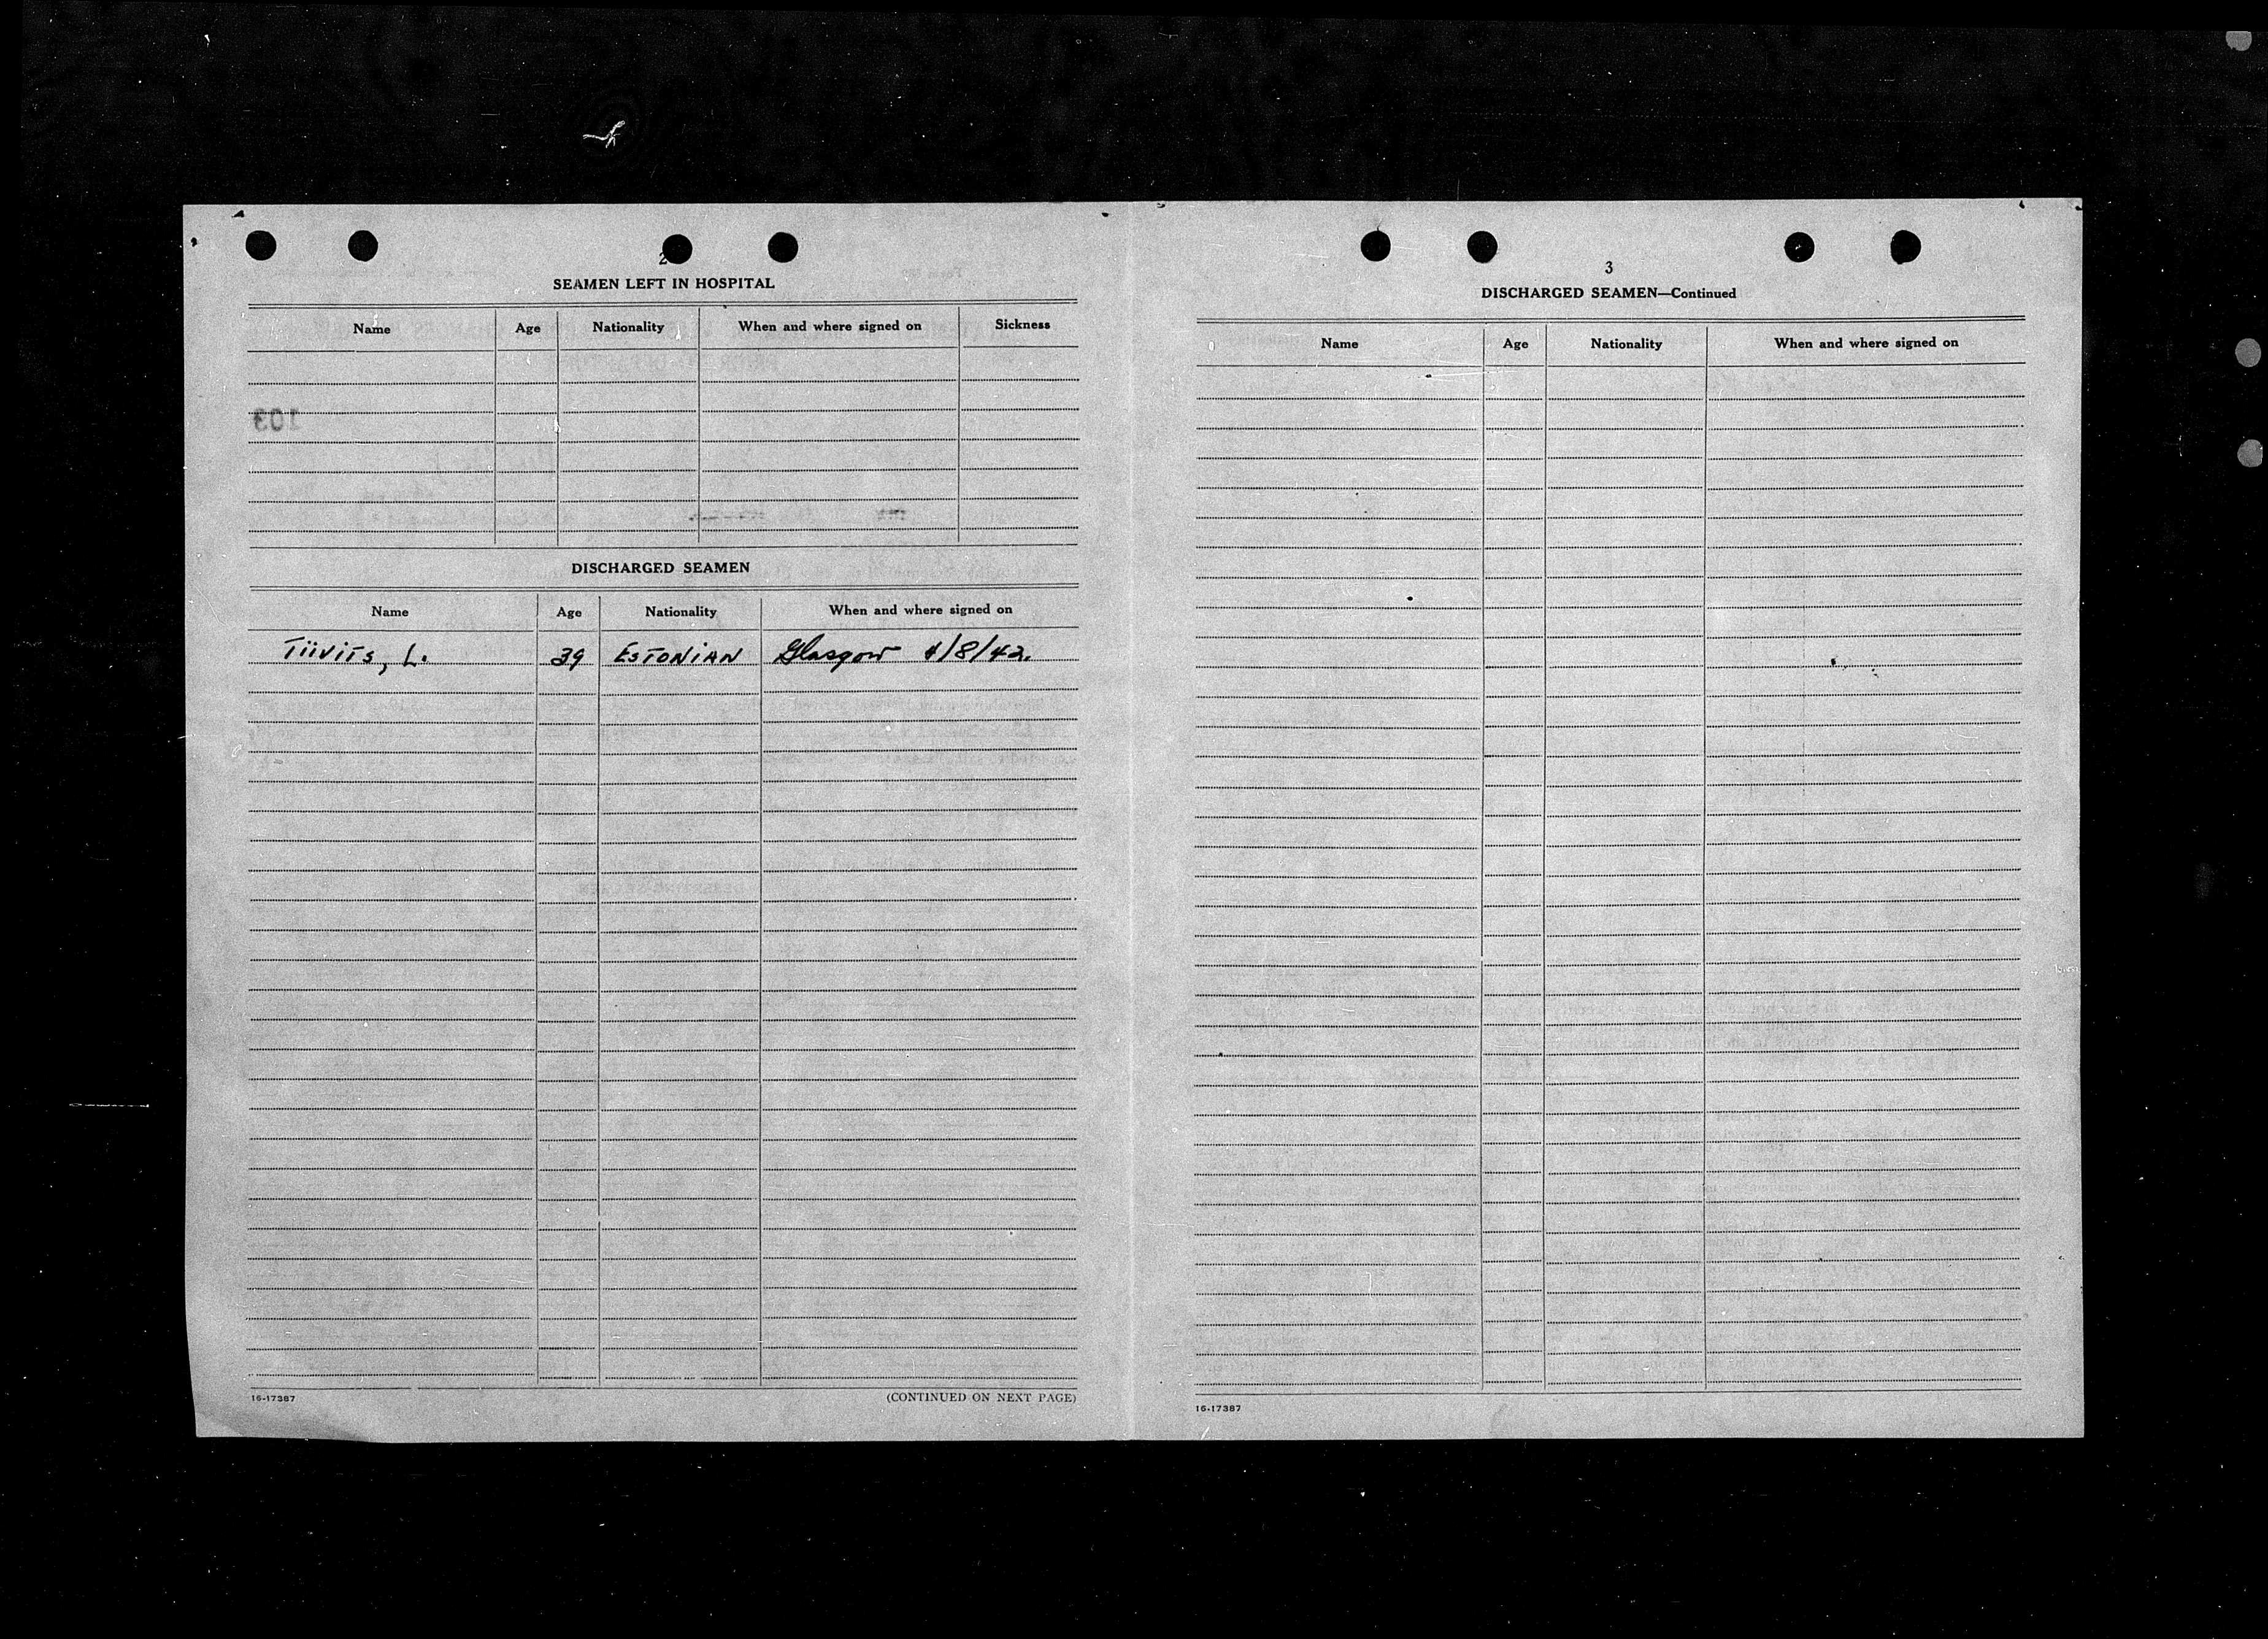 2
SEAMEN LEFT IN HOSPITAL
Name Age Nationality When and where signed on Sickness
103
DISCHARGED SEAMEN
Name Age Nationality When and where signed on
Tiivits, L. 39 ESTONIAN Glasgow 4/8/42.
16-17387 (CONTINUED ON NEXT PAGE)
3
DISCHARGED SEAMEN—Continued
Name Age Nationality When and where signed on
16-17387